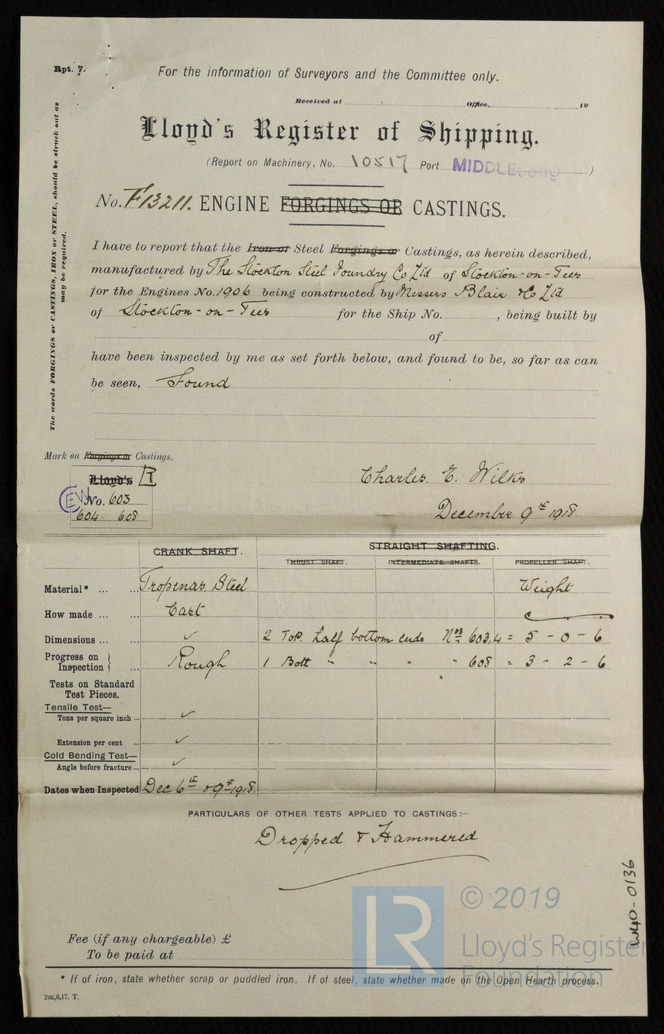 Rpt. 7.
For the information of Surveyors and the Committee only.
Received at Office, 19
Lloyd's Register of Shipping.
(Report on Machinery, No. 10517 Port MIDDLESBRO )
No. F13211. ENGINE FORGINGS OR CASTINGS.
The words FORGINGS or CASTINGS, IRON or STEEL, should be struck out as
may be required.
I have to report that the Iron or Steel Forgings or Castings, as herein described,
manufactured by The Stockton Steel Foundry Co Ltd of Stockton-on-Tees
for the Engines No. 1906 being constructed by Messrs Blair & Co Ltd
of Stockton-on-Tees for the Ship No. , being built by
of
have been inspected by me as set forth below, and found to be, so far as can
be seen, Sound
Mark on Forgings or Castings.
Lloyd's R
CEW No. 603
604. 608
Charles. E. Wilks
December 9th 1918
CRANK SHAFT. STRAIGHT SHAFTING.
THRUST SHAFT. INTERMEDIATE SHAFTS. PROPELLER SHAFT.
Material* ... ... Tropenas Steel Weight
How made ... ... Cast
Dimensions ... ... ✓ 2 Top. Half bottom ends Nos 603,4 = 5 - 0 - 6
Progress on Inspection } ... Rough 1 Bott " " " " 608 = 3 - 2 - 6
Tests on Standard
Test Pieces.
Tensile Test—
Tons per square inch ... ✓
Extension per cent ... ✓
Cold Bending Test—
Angle before fracture... ✓
Dates when Inspected Dec 6th & 9th 1918
PARTICULARS OF OTHER TESTS APPLIED TO CASTINGS:—
Dropped & Hammered
W40-0136
Fee (if any chargeable) £
To be paid at
* If of iron, state whether scrap or puddled iron. If of steel, state whether made on the Open Hearth process.
2m,6,17. T.
LR
© 2019
Lloyd's Register
Foundation